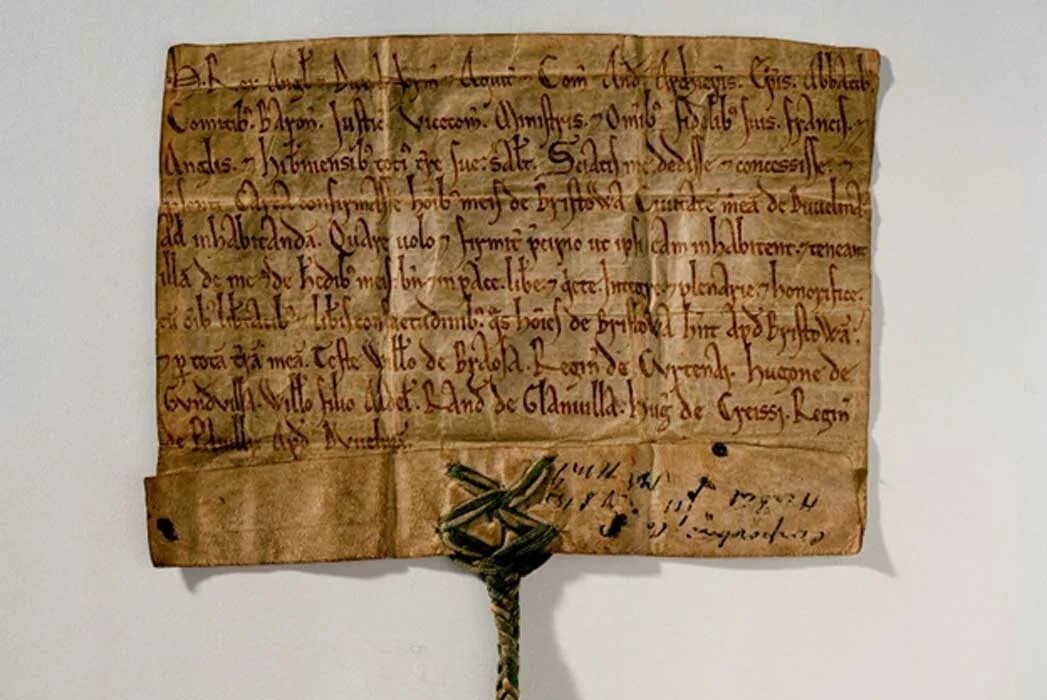 H. Rex Angł ⁊ Dux Norm̄ ⁊ Aquit̄ ⁊ Com̄ And̄. Archiep̄is. Ep̄is. Abbatib;
Comitib; Baron̄. Justic̄. Vicecom̄. Ministris. ⁊ Om̄ib; fidelib; suis. francis. ⁊
Anglis. ⁊ hib̄niensib; toti; t̄re sue: salt̄. Sciatis me dedisse. ⁊ concessisse. ⁊
p̄senti Carta confirmasse ho̅ib; meis de Bristowa Ciuitatē meā de Duuelina
Ad inhabitandā. Quare uolo ⁊ firmit̄ p̄cipio ut ip̄i eam inhabitent. ⁊ teneant
illā de me ⁊ de h̄edib; meis bn̄ ⁊ in pace. lib̄e. ⁊ q̄ete. Integre ⁊ plenarie. ⁊ honorifice.
cū om̄ib; lib̄tatib; ⁊ lib̄is consuetudinib;. q̄s ho̅ies de Bristowa hn̄t Apd̄ Bristowā.
⁊ p totā t̄rā meā. Teste Will̄o de Braosa. Regin̄ de Curtenai. hugone de
Gundvilla. Will̄o filio Aldel̄. Rand̄ de Glanuilla. huḡ de Creissi. Regin̄
de Pauilli. Apd̄ Duuelinā.